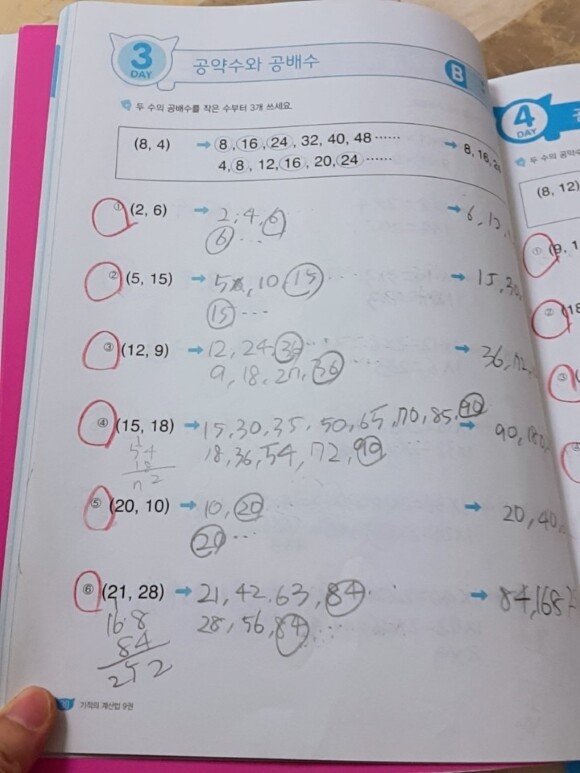 3
DAY
공약수와 공배수
B
두 수의 공배수를 작은 수부터 3개 쓰세요.
(8, 4) → 8, 16, 24, 32, 40, 48 ······ → 8, 16, 2
4, 8, 12, 16, 20, 24 ······
① (2, 6) → 2, 4, 6 → 6, 12,
6 ···
② (5, 15) → 5, 10, 15 ··· → 15, 30,
15 ···
③ (12, 9) → 12, 24, 36 ··· → 36, 72,
9, 18, 27, 36 ···
④ (15, 18) → 15, 30, 35, 50, 65, 70, 85, 90 → 90, 180,
18, 36, 54, 72, 90
54
18
72
⑤ (20, 10) → 10, 20 → 20, 40,
20 ···
⑥ (21, 28) → 21, 42, 63, 84 ··· → 84, 168
28, 56, 84 ···
168
84
252
기적의 계산법 9권
4
DAY
두 수의 공약수
(8, 12)
①
②
③